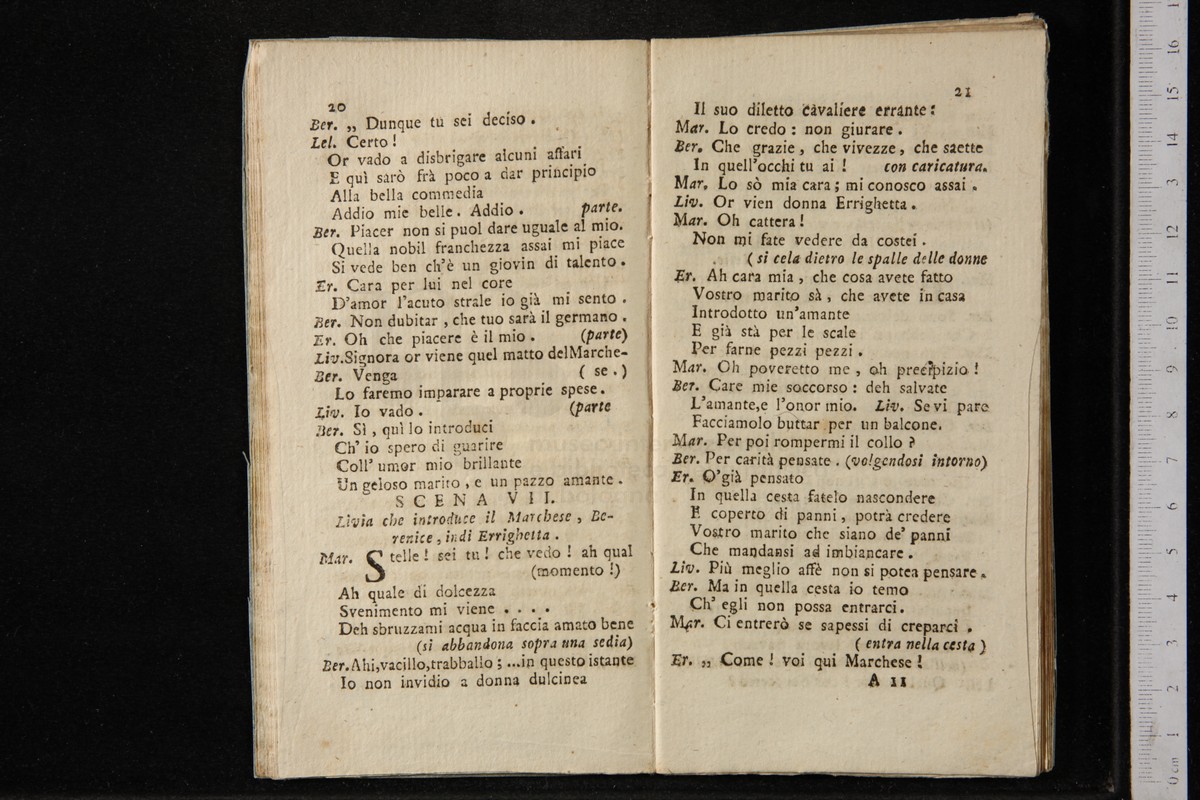 20
Ber. „ Dunque tu sei deciso .
Lel. Certo !
Or vado a disbrigare alcuni affari
E quì sarò frà poco a dar principio
Alla bella commedia
Addio mie belle . Addio . parte.
Ber. Piacer non si puol dare uguale al mio.
Quella nobil franchezza assai mi piace
Si vede ben ch'è un giovin di talento .
Er. Cara per lui nel core
D'amor l'acuto strale io già mi sento .
Ber. Non dubitar , che tuo sarà il germano .
Er. Oh che piacere è il mio . (parte)
Liv.Signora or viene quel matto delMarche-
Ber. Venga ( se . )
Lo faremo imparare a proprie spese .
Liv. Io vado . (parte
Ber. Sì , quì lo introduci
Ch' io spero di guarire
Coll' umor mio brillante
Un geloso marito , e un pazzo amante .
SCENA VII.
Livia che introduce il Marchese , Be-
renice , indi Errighetta .
Mar. Stelle ! sei tu ! che vedo ! ah qual
(momento !)
Ah quale di dolcezza
Svenimento mi viene . . . .
Deh sbruzzami acqua in faccia amato bene
(si abbandona sopra una sedia)
Ber.Ahi,vacillo,traballo ; ...in questo istante
Io non invidio a donna dulcinea
21
Il suo diletto cavaliere errante :
Mar. Lo credo : non giurare .
Ber. Che grazie , che vivezze , che saette
In quell'occhi tu ai ! con caricatura.
Mar. Lo sò mia cara ; mi conosco assai .
Liv. Or vien donna Errighetta .
Mar. Oh cattera !
Non mi fate vedere da costei .
( si cela dietro le spalle delle donne
Er. Ah cara mia , che cosa avete fatto
Vostro marito sà , che avete in casa
Introdotto un'amante
E già stà per le scale
Per farne pezzi pezzi .
Mar. Oh poveretto me , oh precipizio !
Ber. Care mie soccorso : deh salvate
L'amante,e l'onor mio. Liv. Se vi pare
Facciamolo buttar per un balcone.
Mar. Per poi rompermi il collo ?
Ber. Per carità pensate . (volgendosi intorno)
Er. O'già pensato
In quella cesta fatelo nascondere
E coperto di panni , potrà credere
Vostro marito che siano de' panni
Che mandansi ad imbiancare .
Liv. Più meglio affè non si potea pensare .
Ber. Ma in quella cesta io temo
Ch' egli non possa entrarci .
Mar. Ci entrerò se sapessi di creparci .
( entra nella cesta )
Er. „ Come ! voi qui Marchese !
A 11